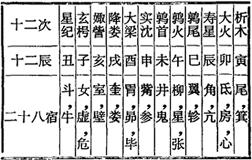 十二次 星纪 玄枵 娵訾 降娄 大梁 实沈 鹑首 鹑火 鹑尾 寿星 大火 析木
十二辰 丑 子 亥 戌 酉 申 未 午 巳 辰 卯 寅
二十八宿 斗,牛 女,虚,危 室,壁 奎,娄 胃,昴,毕 觜,参 井,鬼 柳,星,张 翼,轸 角,亢 氐,房,心 尾,箕